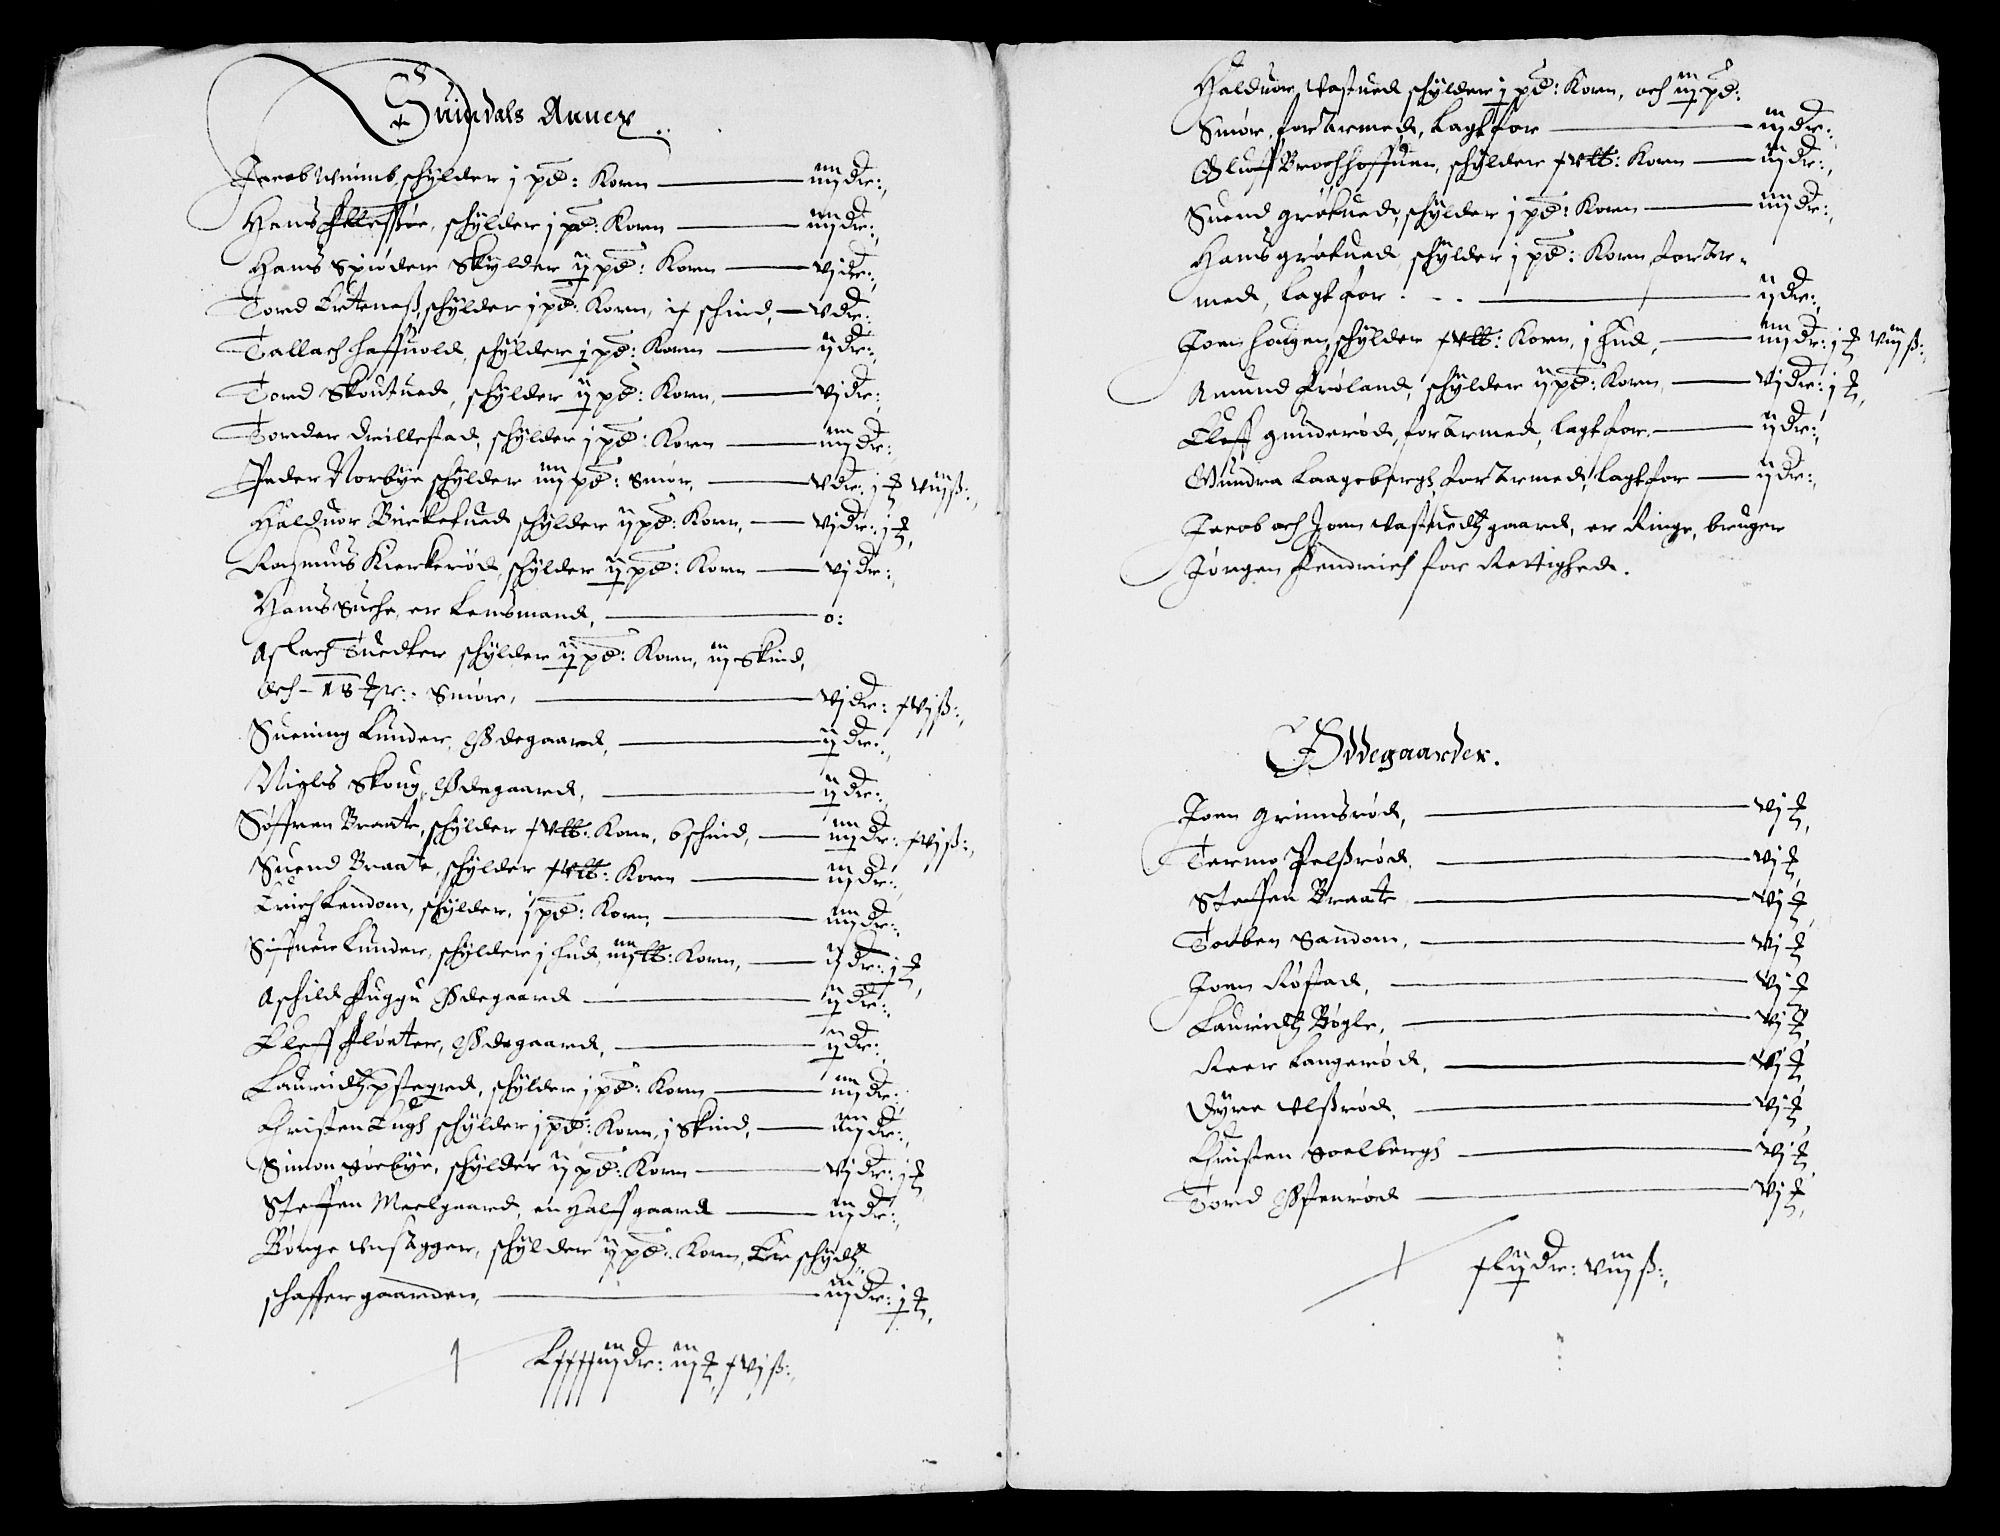 Suindals Annex
Jacob Wiimb, schylder j pd: Korn — iiij dr:,
Hans schylder j pd: Korn — iiij dr:,
Hans Spiøder Skylder ij pd: Korn — vj dr:,
Tord schylder j pd: Korn, schind, — v dr:
Tallach schylder j pd: Korn — ij dr:,
Tord schylder ij pd: Korn, — vj dr:,
Torder schylder j pd: Korn — iiij dr:,
Peder Norbye schylder iiij pd: Smør, — v dr: j viij ß:,
Halduor Birketued schylder ij pd: Korn, — vj dr: j
Rasmus Kierkerød, schylder ij pd: Korn — vj dr:,
Hans Suche, er Lensmand, — o:
Aslach Tuedter schylder ij pd: Korn, iij Skind,
Och 18 Smør, — vj dr: xvj ß:,
Suening Lunder, Ødegaard, — ij dr:,
Niels Skoug, Ødegaard, — ij dr:,
Søffren Braate, schylder xv lb: Korn, 6 schind, — iiij dr: xvj ß:,
Suend Braate, schylder lb: Korn — iij dr:,
Erich Kendom, schylder, j pd: Korn, — iiij dr:,
Siffuer Lunder, schylder j hud, iiij lb: Korn, — dr: j
Aschild Ødegaard — ij dr:,
Eleff Ødegaard, — ij dr:,
Lauridtz schylder j pd: Korn — iiij dr:,
Christen schylder j pd: Korn, j Skind, — iiij dr:,
Simon Sørbye, schylder ij pd: Korn — vj dr: j
Steffen Melgaard, en Halff gaard — iij dr:,
Børge schylder ij pd: Korn, Er schydtz
schaffer gaarden, — iiij dr: j
Lxxxxiij dr: iij xvj ß:,
Halduor Vastued schylder j pd: Korn, och iij pd:
Smør, forarmed, Lagt for — iij dr:,
Oluff Brochhoffuen, schylder xv lb: Korn — iij dr:,
Suend Grøtued, schylder j pd: Korn — iiij dr:,
Hans Grøtued, schylder j pd: Korn forar-
med, Lagt for — ij dr:,
Joen Hougen, schylder xv lb: Korn, j hud, — iiij dr: j viij ß:,
Amund Frøland, schylder ij pd: Korn, — vj dr: j
Eleff Gunderød, forarmed, Lagt for. — ij dr:,
Gundra Laagebergh, forarmed, Lagt for — ij dr:,
Jacob och Joen Vastuedtz gaard, er Ringe, bruger
Jørgen Hendrich for Rettighed.
Øddegaarder.
Joen Grimsrød, — vj
Termo Pelßrød, — vj
Steffen Braate — vj
Torben Sandom, — vj
Joen Røstad, — vj
Lauridtz Bøgle, — vj
Reer Langerød, — vj
Dyre Ulßrød, — vj
Christen Soelbergh — vj
Tord Østenrød — vj
xlij dr: viij ß:,